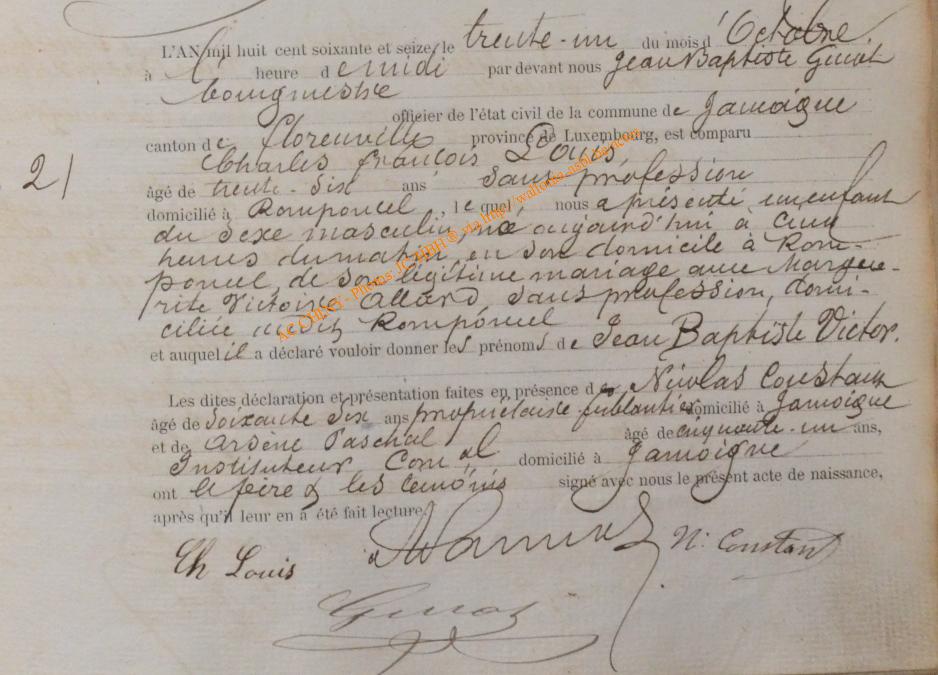 L'AN mil huit cent soixante et seize, le trente-un du mois d'Octobre.
à heure de midi par devant nous Jean Baptiste
bourgmestre
officier de l'état civil de la commune de Jamoigne
canton de Florenville province de Luxembourg, est comparu
Charles François Louis,
21
âgé de trente-six ans sans profession
domicilié à Romponcel, lequel nous a présenté un enfant
du sexe masculin, né aujourd'hui à cinq
heures du matin, en son domicile à Rom-
poncel, de son légitime mariage avec Margue-
rite Victoire Allard, sans profession, domi-
ciliée audit Romponcel
et auquel il a déclaré vouloir donner les prénoms de Jean Baptiste Victor.
Les dites déclaration et présentation faites en présence de Nicolas Constant
âgé de soixante six ans propriétaire domicilié à Jamoigne
et de Arsène Paschal âgé de cinquante-un ans,
Instituteur Com.al domicilié à Jamoigne
ont le père & les témoins signé avec nous le présent acte de naissance,
après qu'il leur en a été fait lecture.
Ch Louis N. Constant
AC CHINY - Photos JC HBH © via http://wallonia-asbl.be